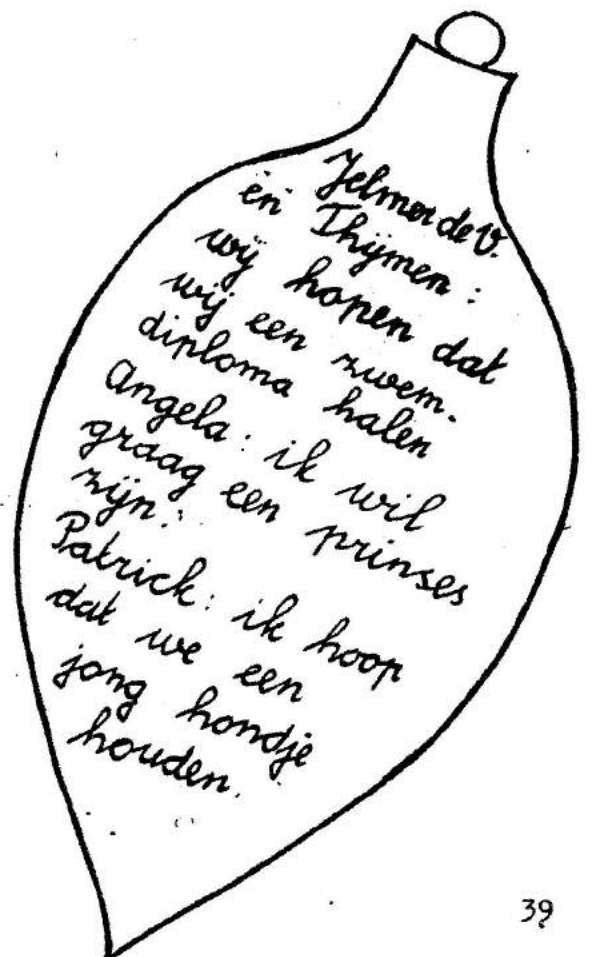 Jelmer de V.
en Thijmen :
wij hopen dat
wij een zwem-
diploma halen
Angela : ik wil
graag een prinses
zijn.
Patrick : ik hoop
dat we een
jong hondje
houden.
39